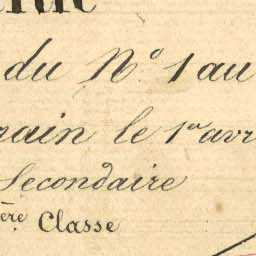 du Nº 1 au
rain le 1er avr
Secondaire
ère Classe